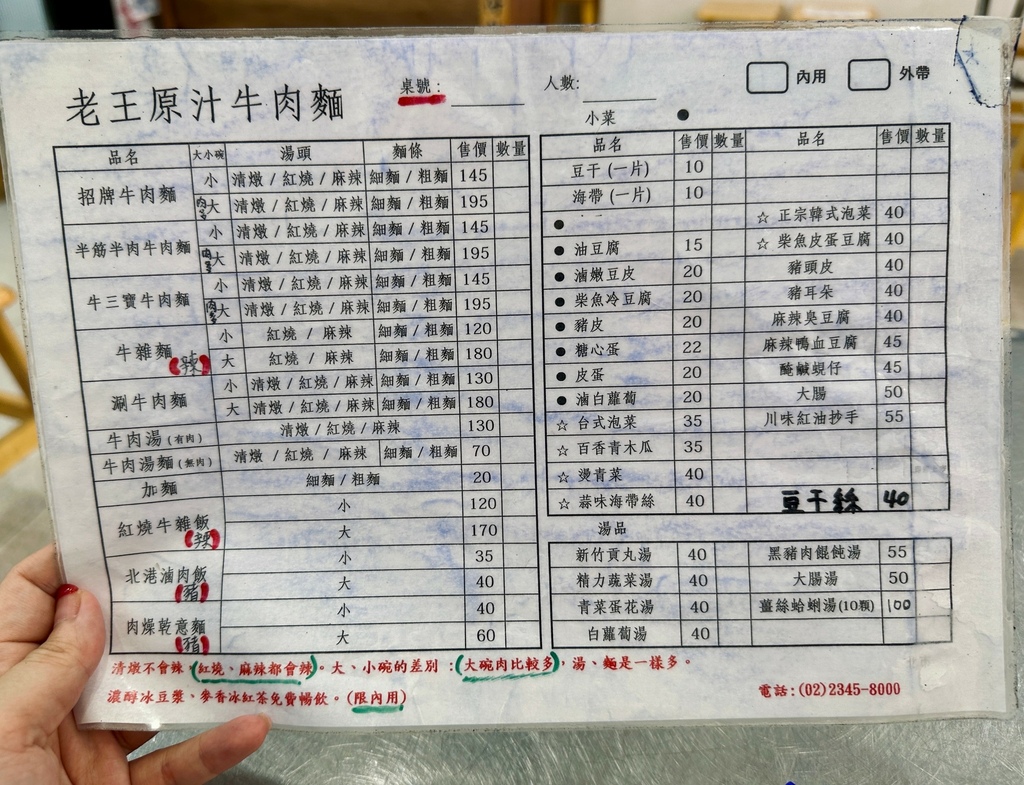 老王原汁牛肉麵
桌號：
人數:
內用
外帶
品名 大小碗 湯頭 麵條 售價 數量
招牌牛肉麵 小 清燉 / 紅燒 / 麻辣 細麵 / 粗麵 145
肉多 大 清燉 / 紅燒 / 麻辣 細麵 / 粗麵 195
半筋半肉牛肉麵 小 清燉 / 紅燒 / 麻辣 細麵 / 粗麵 145
肉多 大 清燉 / 紅燒 / 麻辣 細麵 / 粗麵 195
牛三寶牛肉麵 小 清燉 / 紅燒 / 麻辣 細麵 / 粗麵 145
肉多 大 清燉 / 紅燒 / 麻辣 細麵 / 粗麵 195
牛雜麵 (辣) 小 紅燒 / 麻辣 細麵 / 粗麵 120
大 紅燒 / 麻辣 細麵 / 粗麵 180
涮牛肉麵 小 清燉 / 紅燒 / 麻辣 細麵 / 粗麵 130
大 清燉 / 紅燒 / 麻辣 細麵 / 粗麵 180
牛肉湯 (有肉) 清燉 / 紅燒 / 麻辣 130
牛肉湯麵 (無肉) 清燉 / 紅燒 / 麻辣 細麵 / 粗麵 70
加麵 細麵 / 粗麵 20
紅燒牛雜飯 (辣) 小 120
大 170
北港滷肉飯 (豬) 小 35
大 40
肉燥乾意麵 (豬) 小 40
大 60
小菜 ●
品名 售價 數量 品名 售價 數量
豆干 (一片) 10
海帶 (一片) 10
● ☆ 正宗韓式泡菜 40
● 油豆腐 15 ☆ 柴魚皮蛋豆腐 40
● 滷嫩豆皮 20 豬頭皮 40
● 柴魚冷豆腐 20 豬耳朵 40
● 豬皮 20 麻辣臭豆腐 40
● 糖心蛋 22 麻辣鴨血豆腐 45
● 皮蛋 20 醃鹹蜆仔 45
● 滷白蘿蔔 20 大腸 50
☆ 台式泡菜 35 川味紅油抄手 55
☆ 百香青木瓜 35
☆ 燙青菜 40
☆ 蒜味海帶絲 40 豆干絲 40
湯品
新竹貢丸湯 40 黑豬肉餛飩湯 55
精力蔬菜湯 40 大腸湯 50
青菜蛋花湯 40 薑絲蛤蜊湯(10顆) 100
白蘿蔔湯 40
清燉不會辣、(紅燒、麻辣都會辣)。大、小碗的差別：(大碗肉比較多)，湯、麵是一樣多。
濃醇冰豆漿、麥香冰紅茶免費暢飲。(限內用)
電話:(02)2345-8000